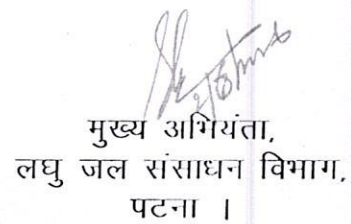 मुख्य अभियंता,
लघु जल संसाधन विभाग,
पटना ।